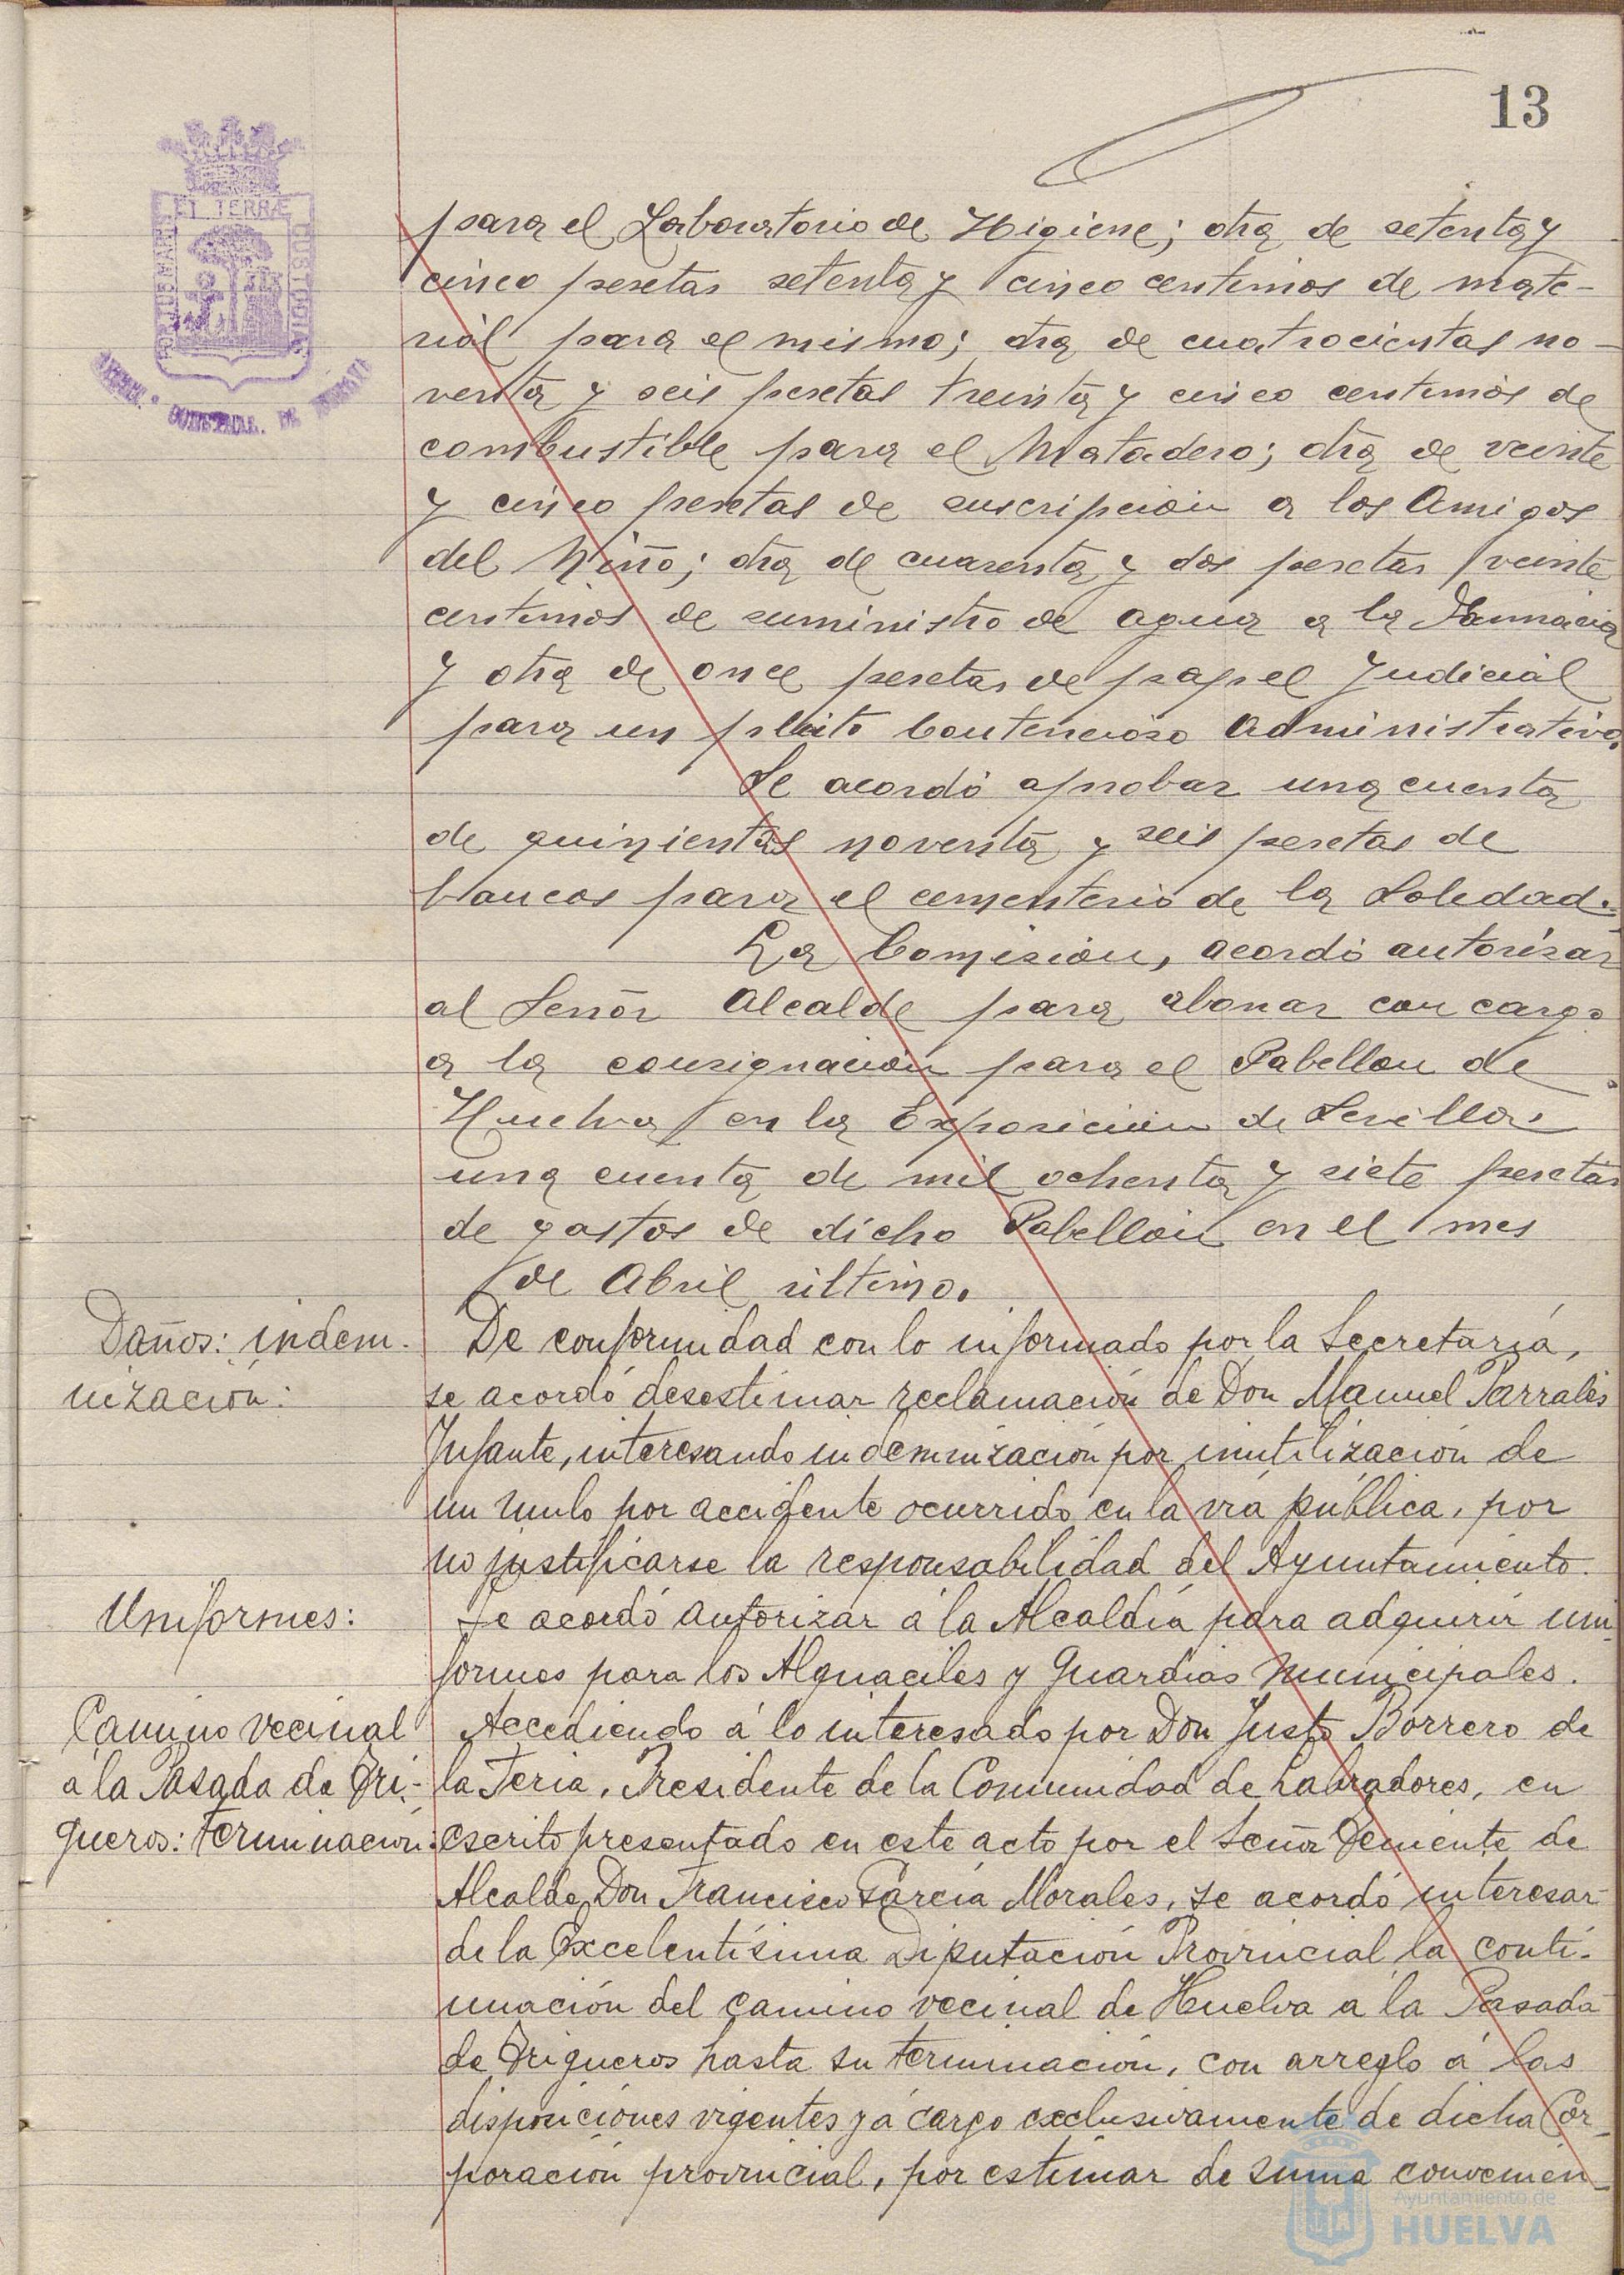 13
ET TERRÆ
CUSTODIA
para el Laboratorio de Higiene; otra de setenta y
cinco pesetas setenta y cinco centimos de mate-
rial para el mismo; otra de cuatrocientas no-
venta y seis pesetas treinta y cinco centimos de
combustible para el Matadero; otra de veinte
y cinco pesetas de suscripción a los Amigos
del Niño; otra de cuarenta y dos pesetas veinte
centimos de suministro de agua a la Farmacia
y otra de once pesetas de papel Judicial
para un pleito Contencioso Administrativo.
Se acordó aprobar una cuenta
de quinientas noventa y seis pesetas de
bancos para el cementerio de la Soledad.
La Comision, acordó autorizar
al Señor Alcalde para abonar con cargo
a la consignación para el Pabellon de
Huelva en la Exposicion de Sevilla
una cuenta de mil ochenta y siete pesetas
de gastos de dicho Pabellón en el mes
de Abril ultimo.
Daños: indem-
nización:
De conformidad con lo informado por la Secretaría,
se acordó desestimar reclamación de Don Manuel Parrales
Infante, interesando indemnización por inutilización de
un mulo por accidente ocurrido en la vía pública, por
no justificarse la responsabilidad del Ayuntamiento.
Uniformes:
Se acordó autorizar á la Alcaldía para adquirir uni-
formes para los Alguaciles y Guardias municipales.
Camino vecinal
a la Pasada de Tri-
gueros: terminación:
Accediendo á lo interesado por Don Justo Borrero de
la Feria, Presidente de la Comunidad de Labradores, en
escrito presentado en este acto por el Señor Teniente de
Alcalde Don Francisco García Morales, se acordó interesar
de la Excelentísima Diputación Provincial la conti-
nuación del camino vecinal de Huelva a la Pasada
de Trigueros hasta su terminación, con arreglo á las
disposiciones vigentes y á cargo exclusivamente de dicha Cor-
poración provincial, por estimar de suma convenien-
Ayuntamiento de
HUELVA